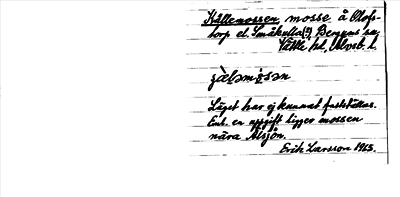 Källemossen mosse å Olofs-
torp el. Småkulla(?), Bergums sn,
Vättle hd, Älvsb. l.
Läget har ej kunnat fastställas.
Enl. en uppgift ligger mossen
nära Alsjön.
Erik Larsson 1965.